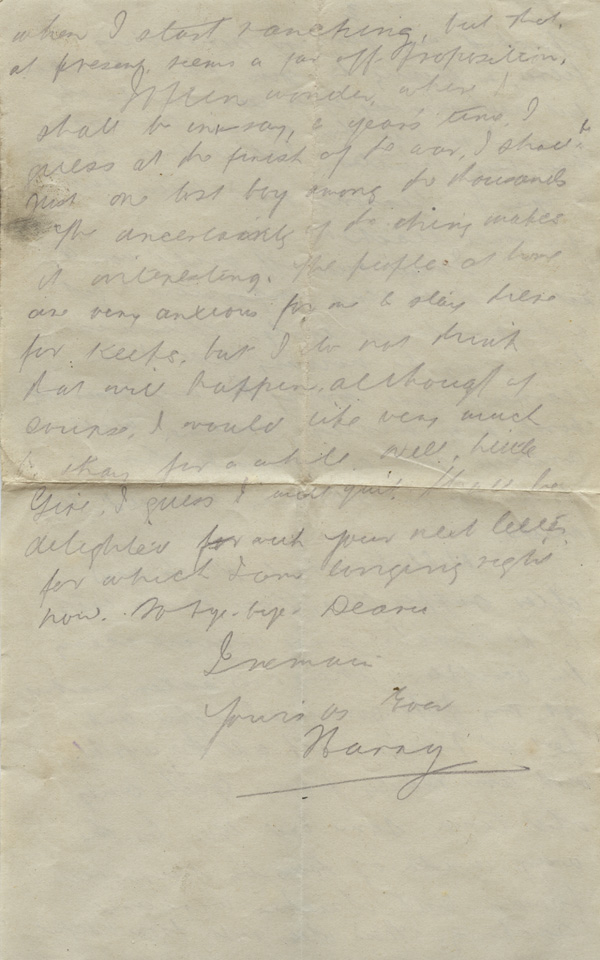 when I start ranching, but that,
at present, seems a far off Proposition.
I often wonder, where I
shall be in say, a year's time, I
guess at the finish of the war, I shall
just one lost boy among the thousands
The uncertainty of the thing makes
it interesting. The people at home
are very anxious for me to stay here
for keeps, but I do not think
that will happen, although of
course, I would like very much
to stay for a while. Well, little
Girl, I guess I will quit. Shall be
delighted with your next letter
for which I am longing right
now. So bye-bye Dearie
I remain
Yours as Ever
Harry